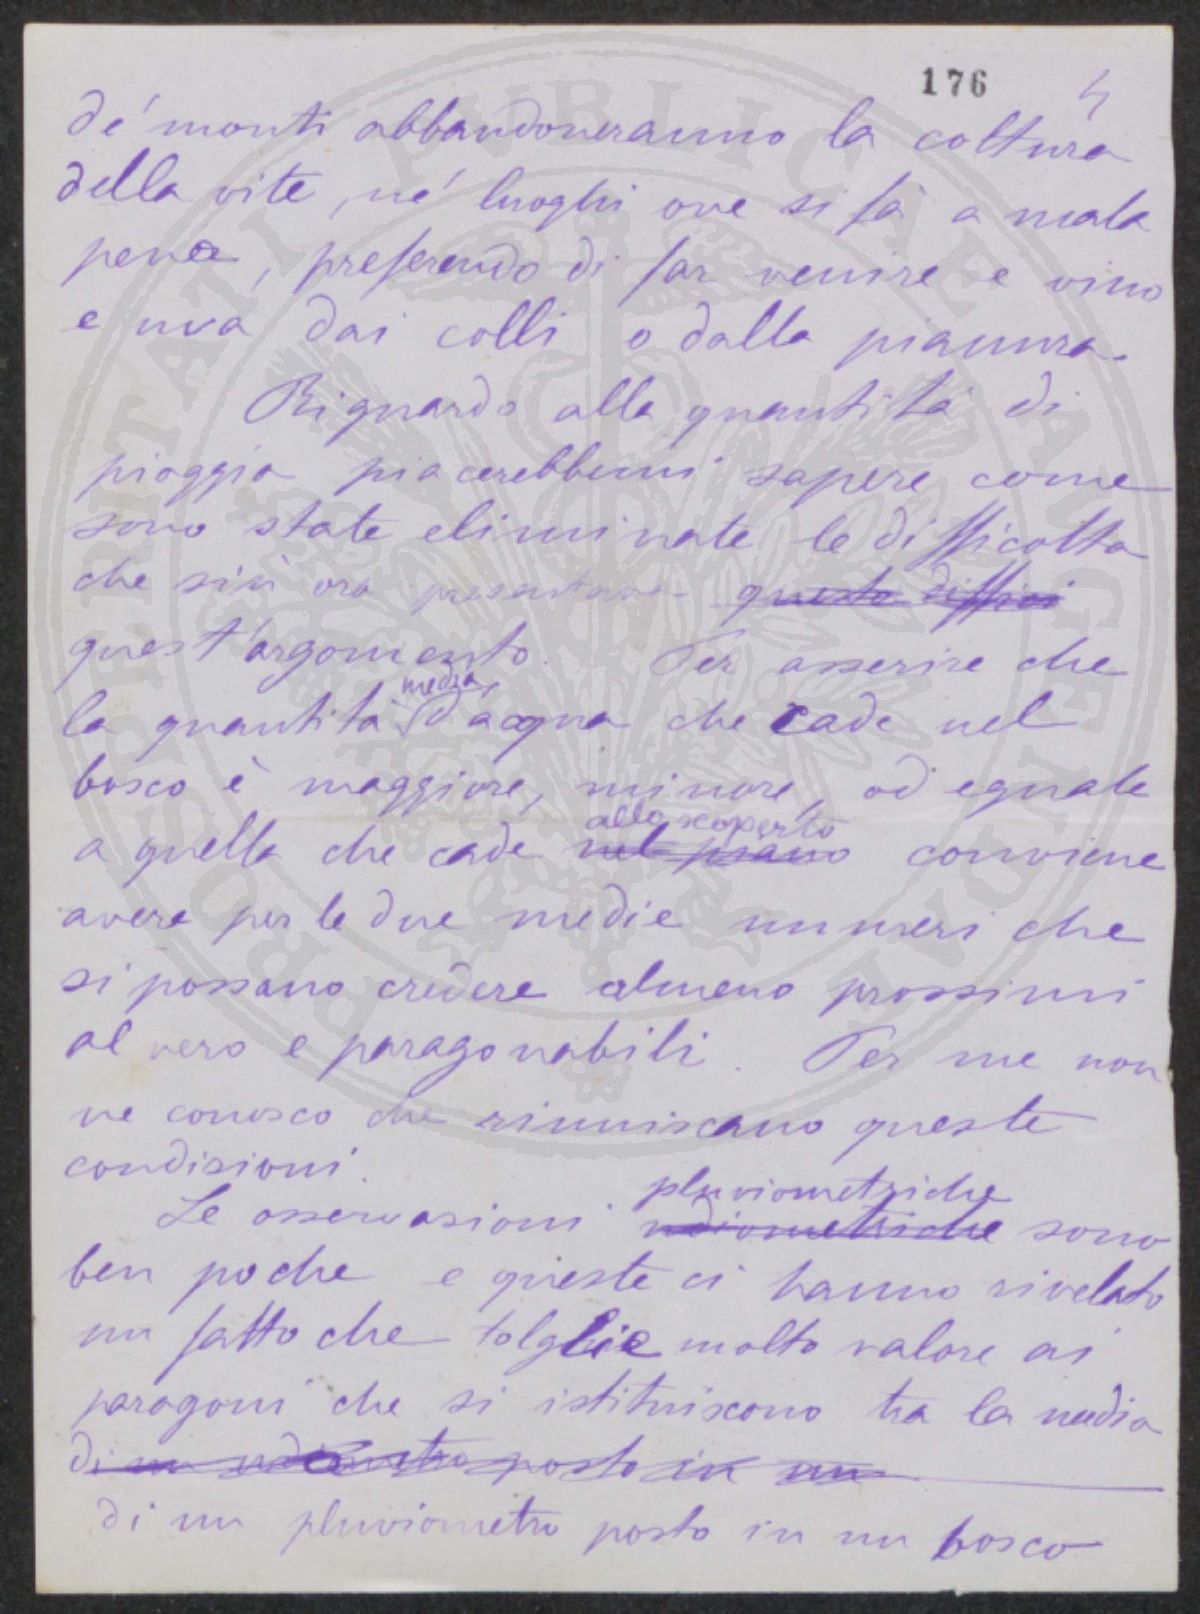 176 4
de' monti abbandoneranno la coltura
della vite, ne' luoghi ove si fà a mala
pena, preferendo di far venire e vino
e uva dai colli o dalla pianura.
Riguardo alla quantità di
pioggia piacerebbemi sapere come
sono state eliminate le difficoltà
che sin ora presentava questo diffici
quest'argomento. Per asserire che
media
la quantità d'acqua che cade nel
bosco è maggiore, minore, od eguale
allo scoperto
a quella che cade nel piano conviene
avere per le due medie numeri che
si possano credere almeno prossimi
al vero e paragonabili. Per me non
ne conosco che riuniscano queste
condizioni.
pluviometriche
Le osservazioni udiometriche sono
ben poche e queste ci hanno rivelato
un fatto che tolglie molto valore ai
paragoni che si istituiscono tra la media
di un udometro posto in un
di un pluviometro posto in un bosco
PROSPERITATI PUBLICAE AUGENDAE